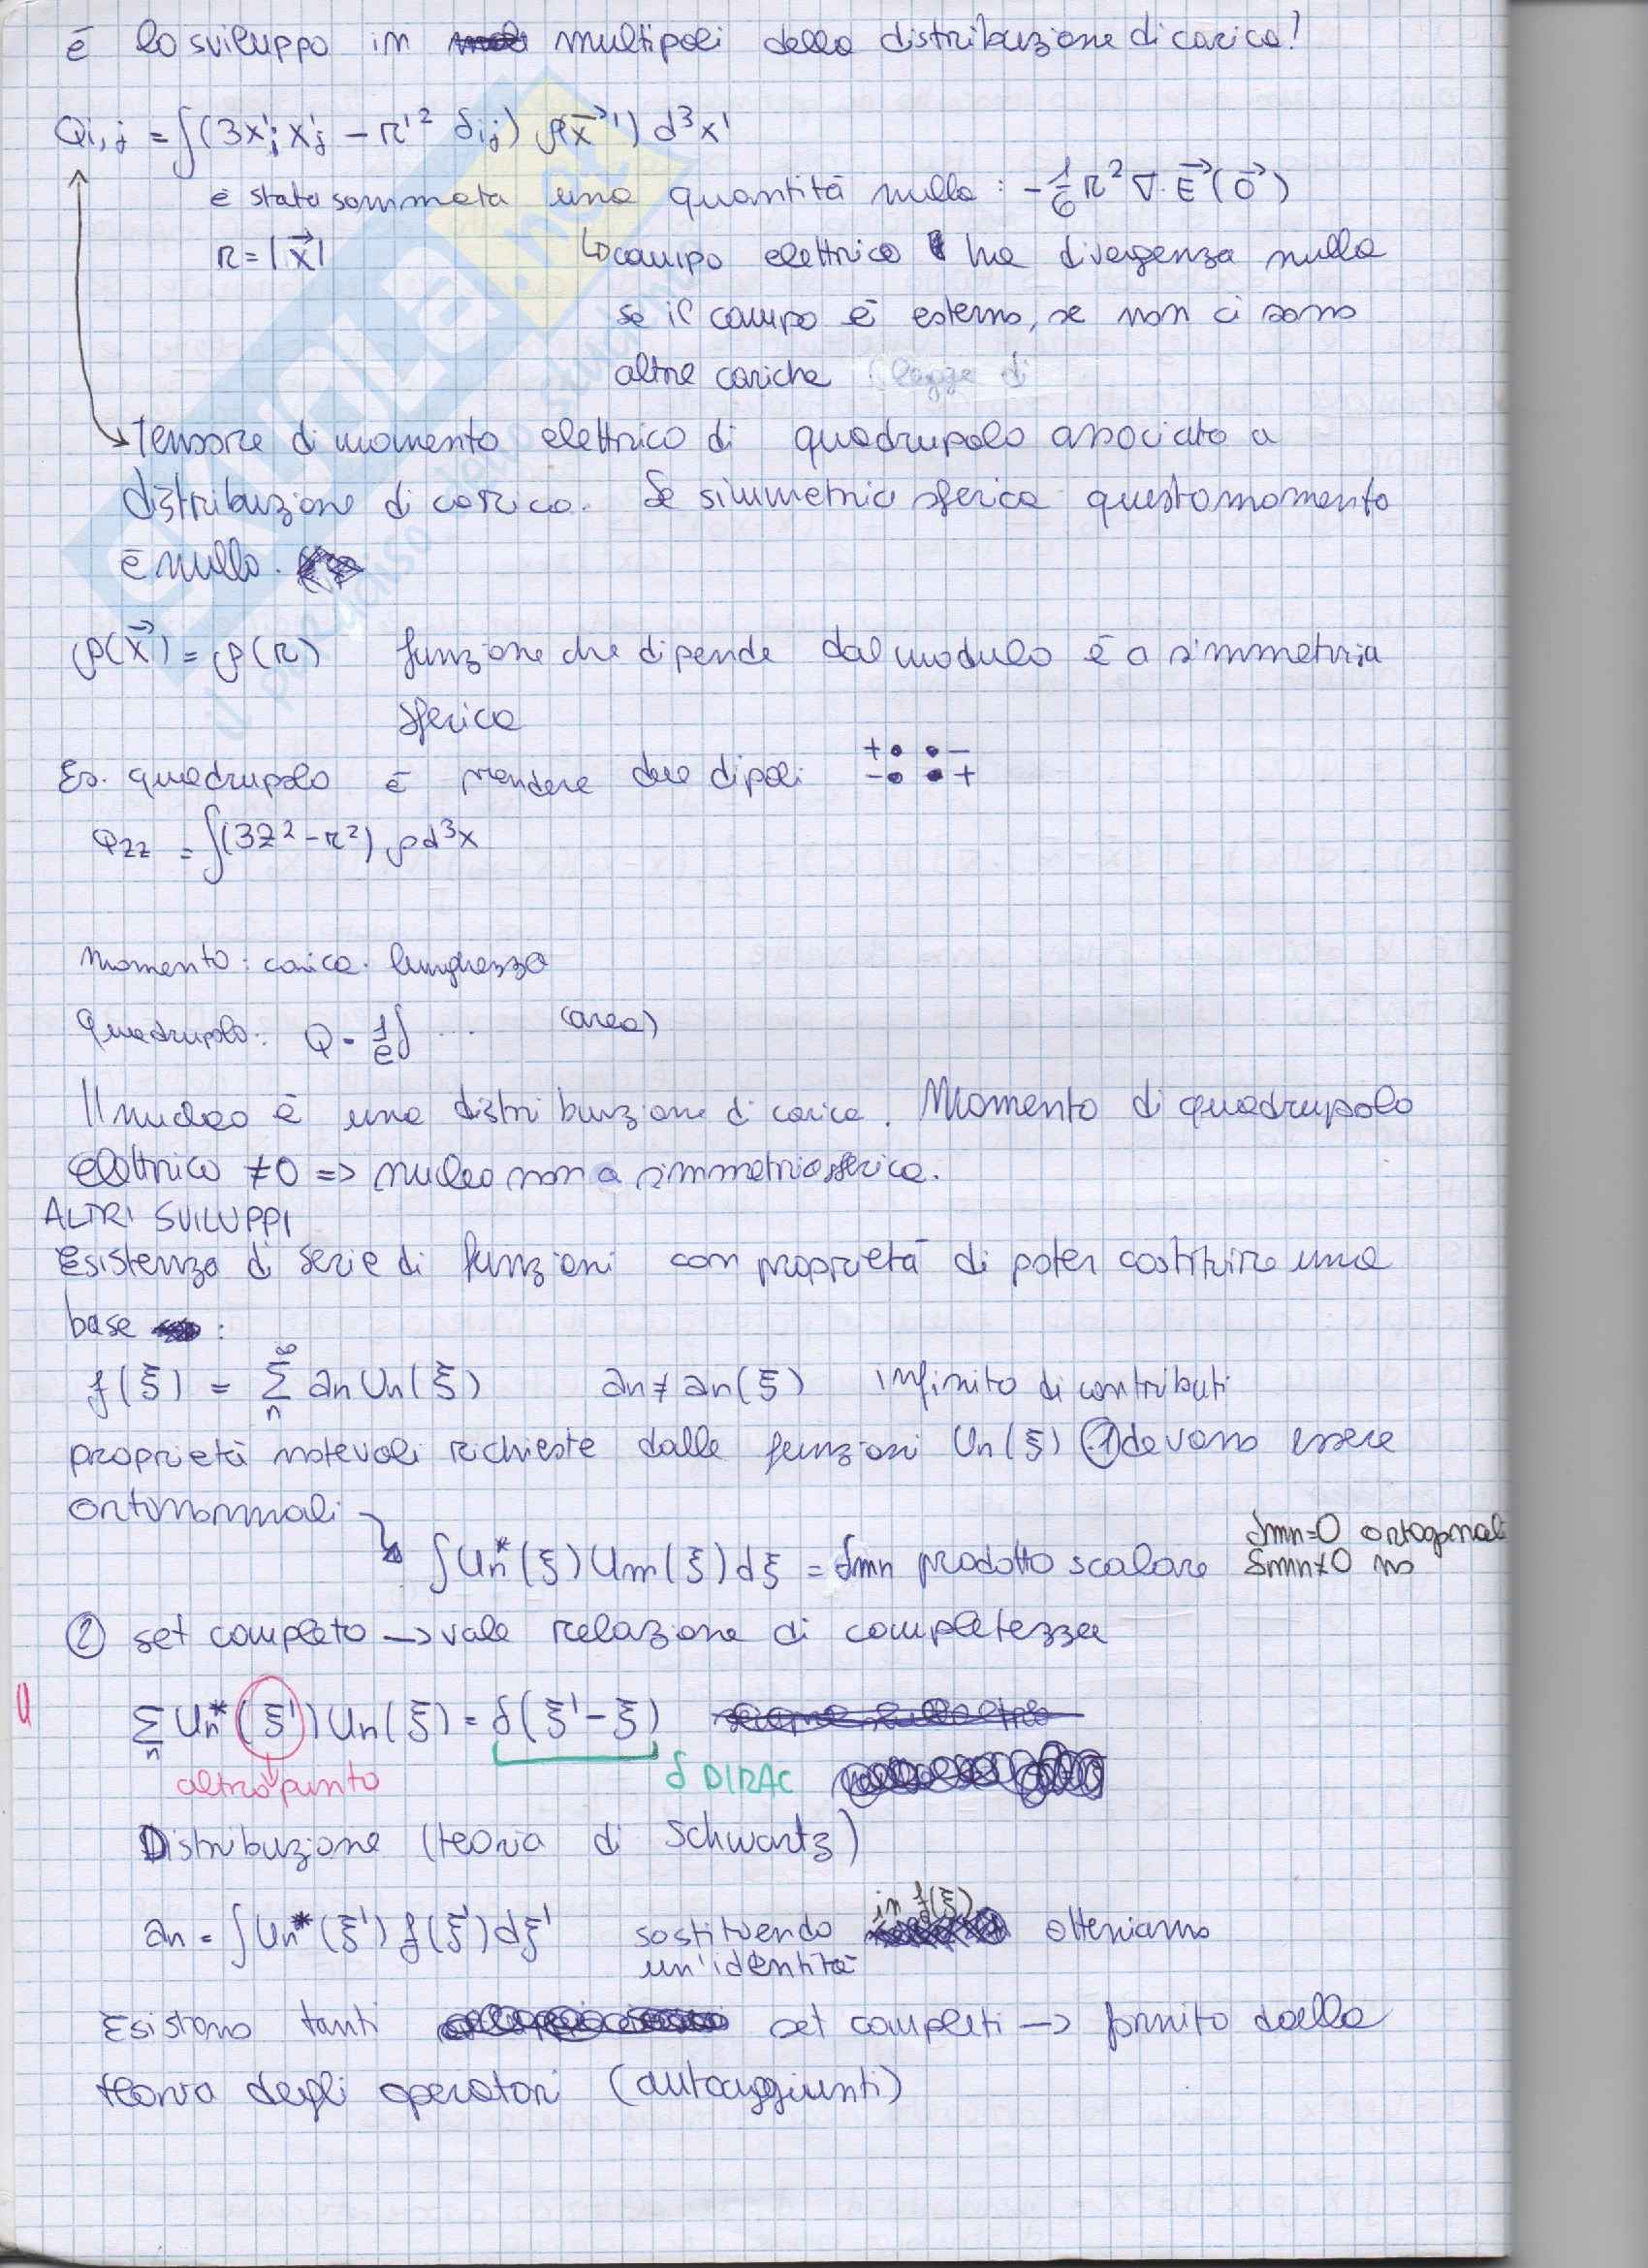 è lo sviluppo in multipoli della distribuzione di carica!
Qi,j = ∫(3x'i x'j − r'² δij) ρ(x⃗') d³x'
è stata sommata una quantità nulla : −1/6 r² ∇·E⃗(0⃗)
r = |x⃗| ↳ campo elettrico ha divergenza nulla
se il campo è esterno, se non ci sono
altre cariche (legge di
Tensore di momento elettrico di quadrupolo associato a
distribuzione di carica. Se simmetria sferica questo momento
è nullo.
ρ(x⃗) = ρ(r) funzione che dipende dal modulo è a simmetria
sferica
Es. quadrupolo è prendere due dipoli +• •−
−• •+
Qzz = ∫(3z² − r²) ρd³x
Momento: carica · lunghezza
Quadrupolo: Q = 1/e ∫ ... (area)
Il nucleo è una distribuzione di carica. Momento di quadrupolo
elettrico ≠0 => nucleo non a simmetria sferica.
ALTRI SVILUPPI
Esistenza di serie di funzioni con proprietà di poter costituire una
base :
f(ξ) = Σn^∞ an Un(ξ) an ≠ an(ξ) infinito di contributi
proprietà notevoli richieste dalle funzioni Un(ξ) ① devono essere
ortonormali
∫Un*(ξ) Um(ξ) dξ = δmn prodotto scalare δmn=0 ortogonali
δmn≠0 no
② set completo → vale relazione di completezza
Σn Un*(ξ') Un(ξ) = δ(ξ'−ξ)
altro punto δ DIRAC
Distribuzione (teoria di Schwartz)
an = ∫Un*(ξ') f(ξ') dξ' sostituendo in f(ξ) otteniamo
un'identità
Esistono tanti set completi → fornito dalla
teoria degli operatori (autoaggiunti)